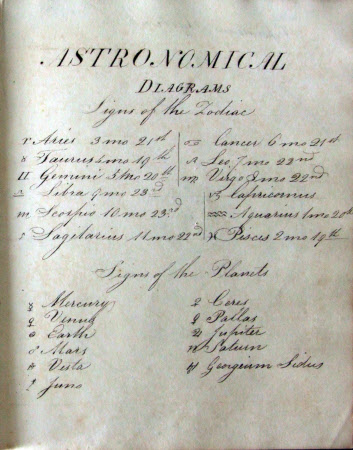 ASTRONOMICAL
DIAGRAMS
Signs of the Zodiac
♈ Aries 3 mo 21st ♋ Cancer 6 mo 21st
♉ Taurus 4 mo 19th ♌ Leo 7 mo 22nd
♊ Gemini 5 mo 20th ♍ Virgo 8 mo 22nd
♎ Libra 9 mo 23rd ♑ Capricornus
♏ Scorpio 10 mo 23rd ♒ Aquarius 1 mo 20th
♐ Sagitarius 11 mo 22nd ♓ Pisces 2 mo 19th
Signs of the Planets
☿ Mercury ⚳ Ceres
♀ Venus ⚴ Pallas
Earth ♃ Jupiter
♂ Mars ♄ Saturn
⚶ Vesta ♅ Georgium Sidus
⚵ Juno